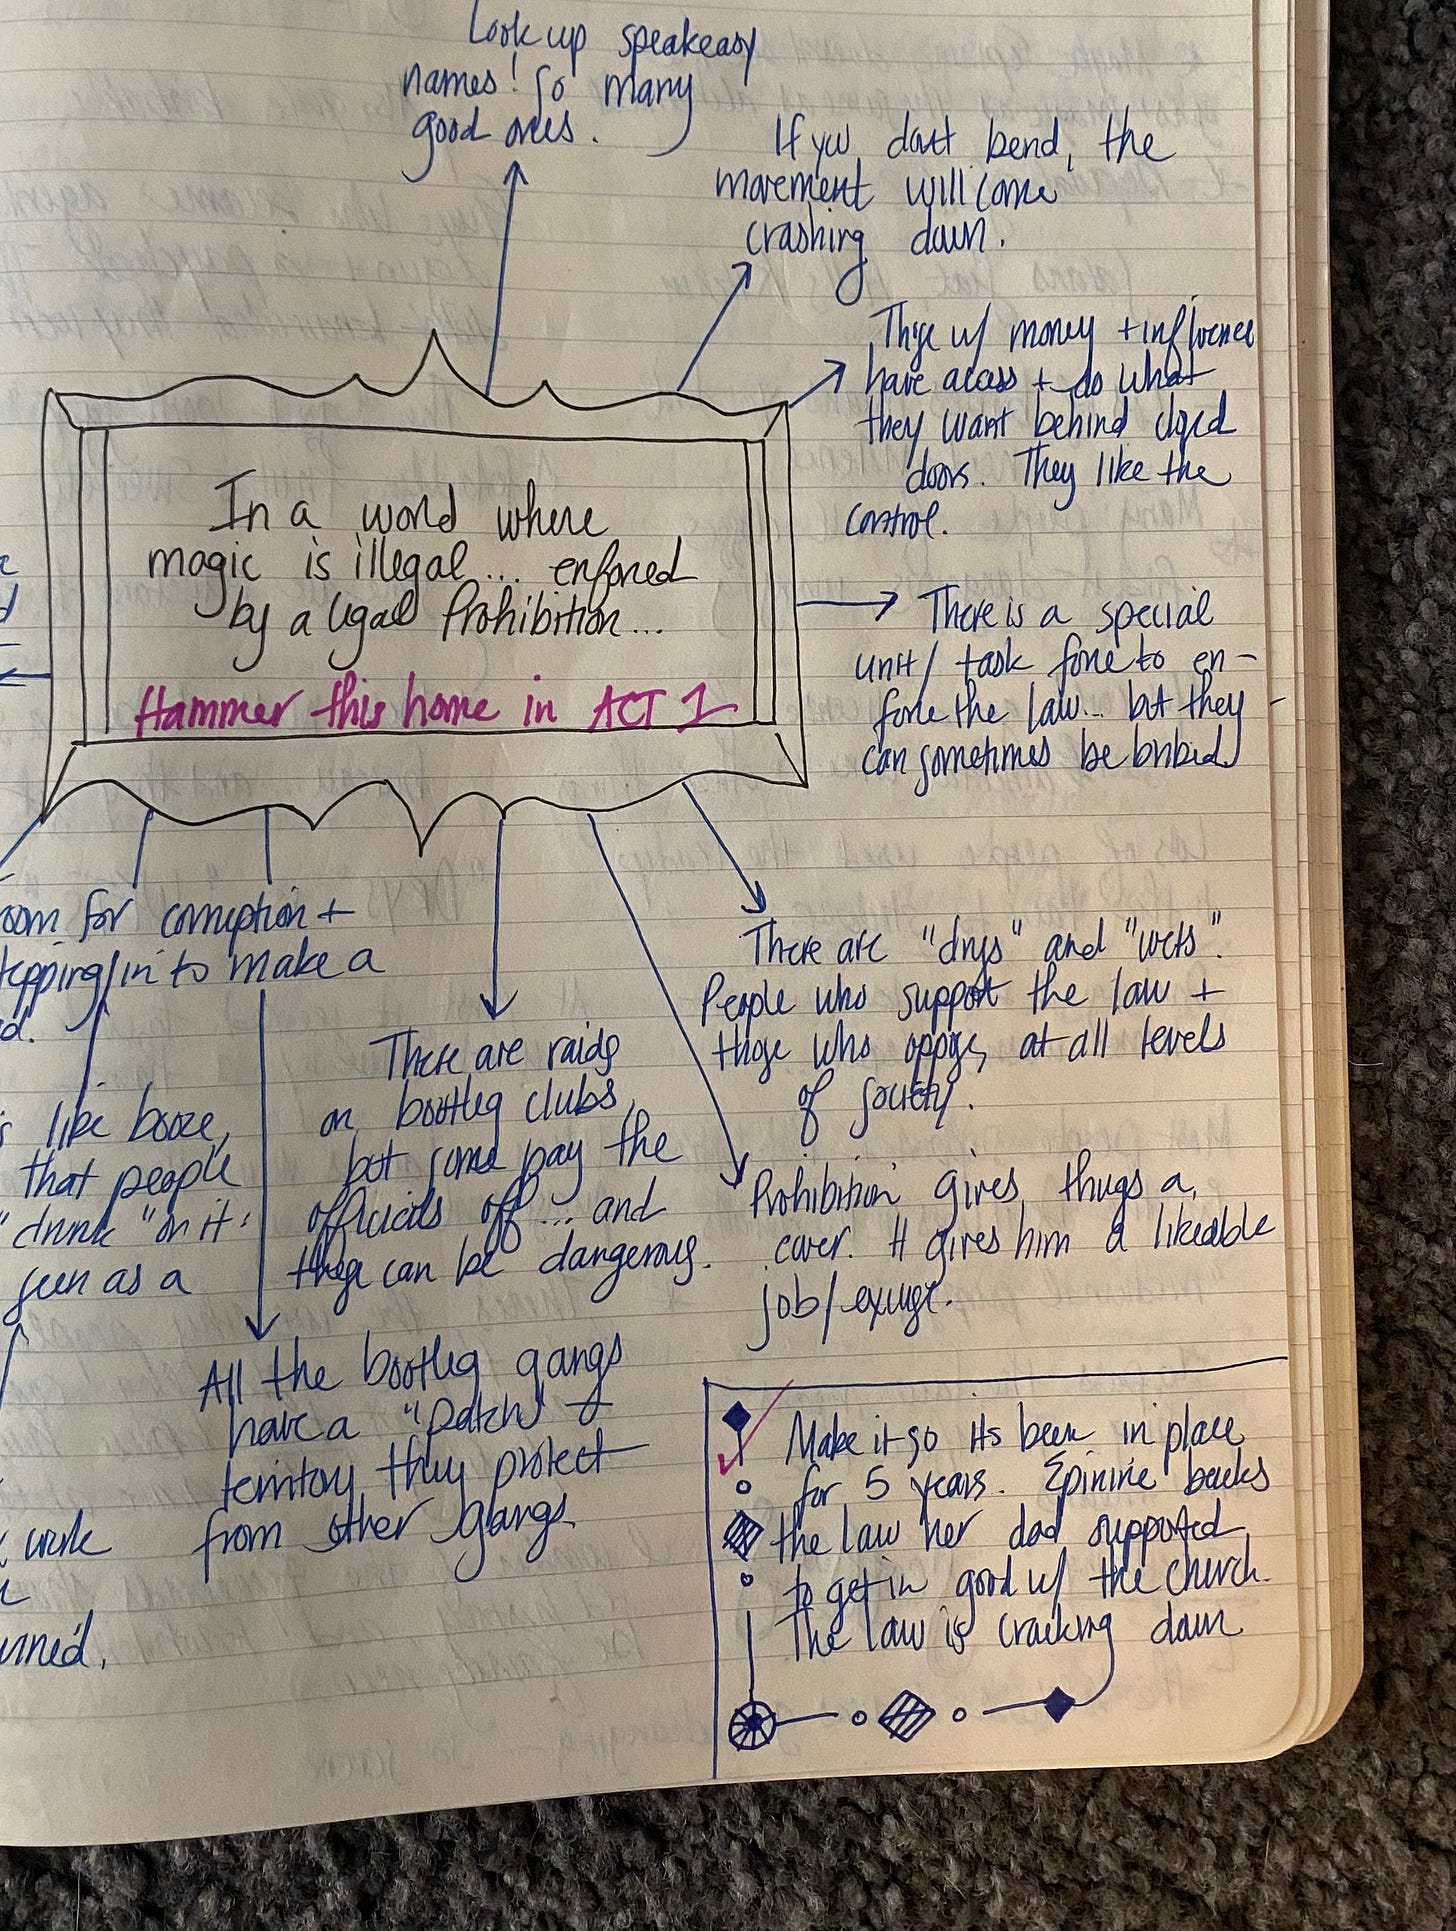 Look up speakeasy
names! So many
good ones.
If you don't bend, the
movement will come
crashing down.
Those w/ money + influence
have access + do what
they want behind closed
doors. They like the
control.
In a world where
magic is illegal... enforced
by a legal Prohibition...
Hammer this home in ACT 1
There is a special
unit/ task force to en-
force the law... but they
can sometimes be bribed
oom for corruption +
tepping in to make a
d.
There are "drys" and "wets".
People who support the law +
those who oppose, at all levels
of society.
There are raids
on bootleg clubs,
but some pay the
officials off... and
these can be dangerous.
s like booze,
that people
"drunk" on it.
seen as a
Prohibition gives thugs a
cover. It gives him a likeable
job/excuse.
All the bootleg gangs
have a "patch" of
territory they protect
from other gangs.
work
nned.
Make it so its been in place
for 5 years. Epinine backs
the law her dad supported
to get in good w/ the church.
The law is cracking down